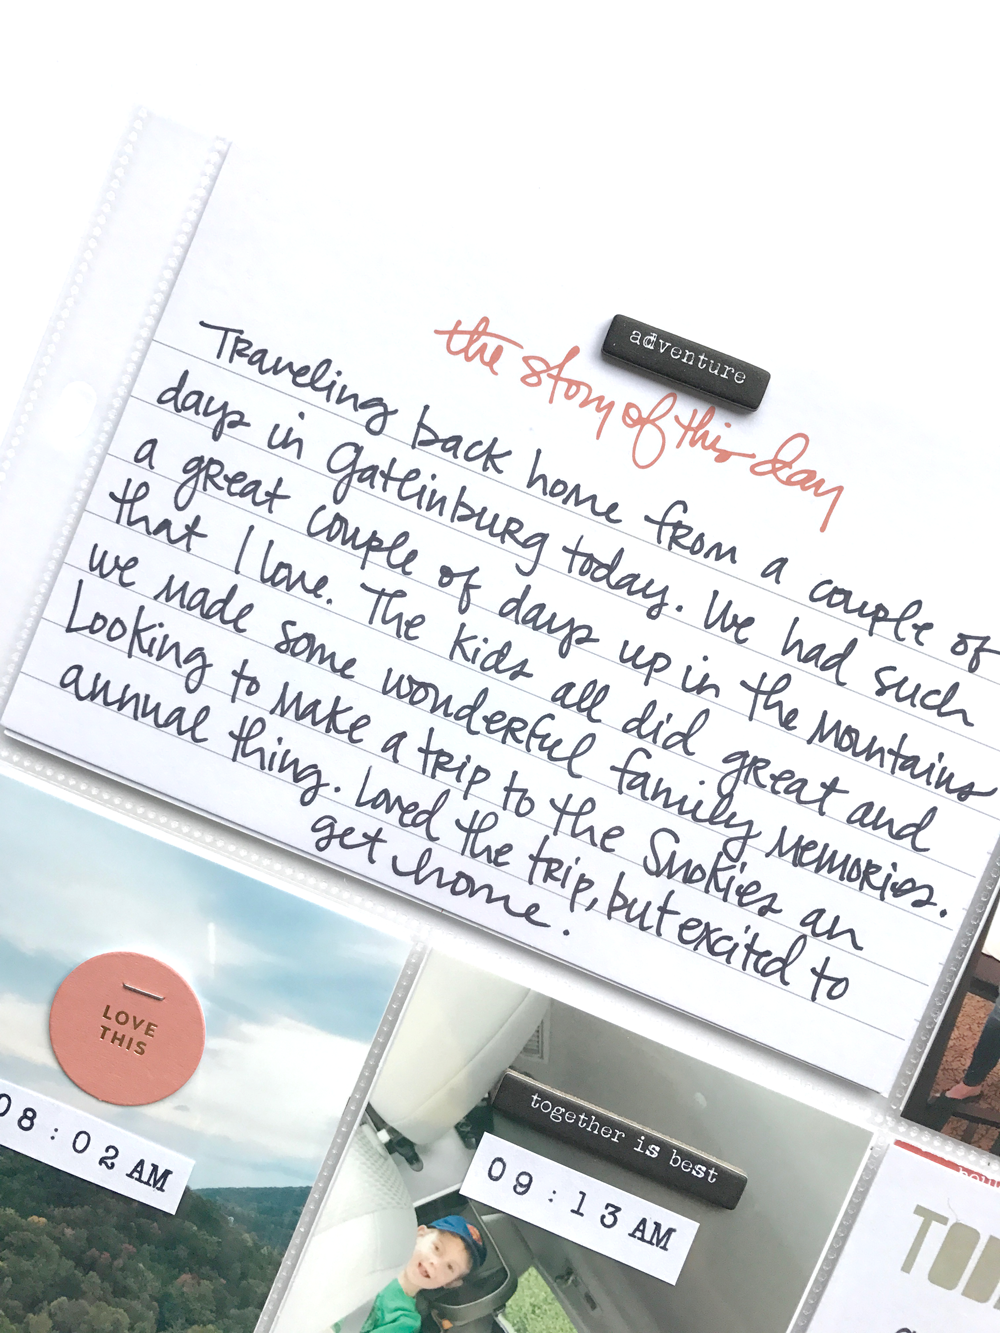 adventure
the story of this day
Traveling back home from a couple of
days in Gatlinburg today. We had such
a great couple of days up in the mountains
that I love. The kids all did great and
we made some wonderful family memories.
Looking to make a trip to the Smokies an
annual thing. Loved the trip, but excited to
get home.
LOVE
THIS
08:02 AM
together is best
09:13 AM